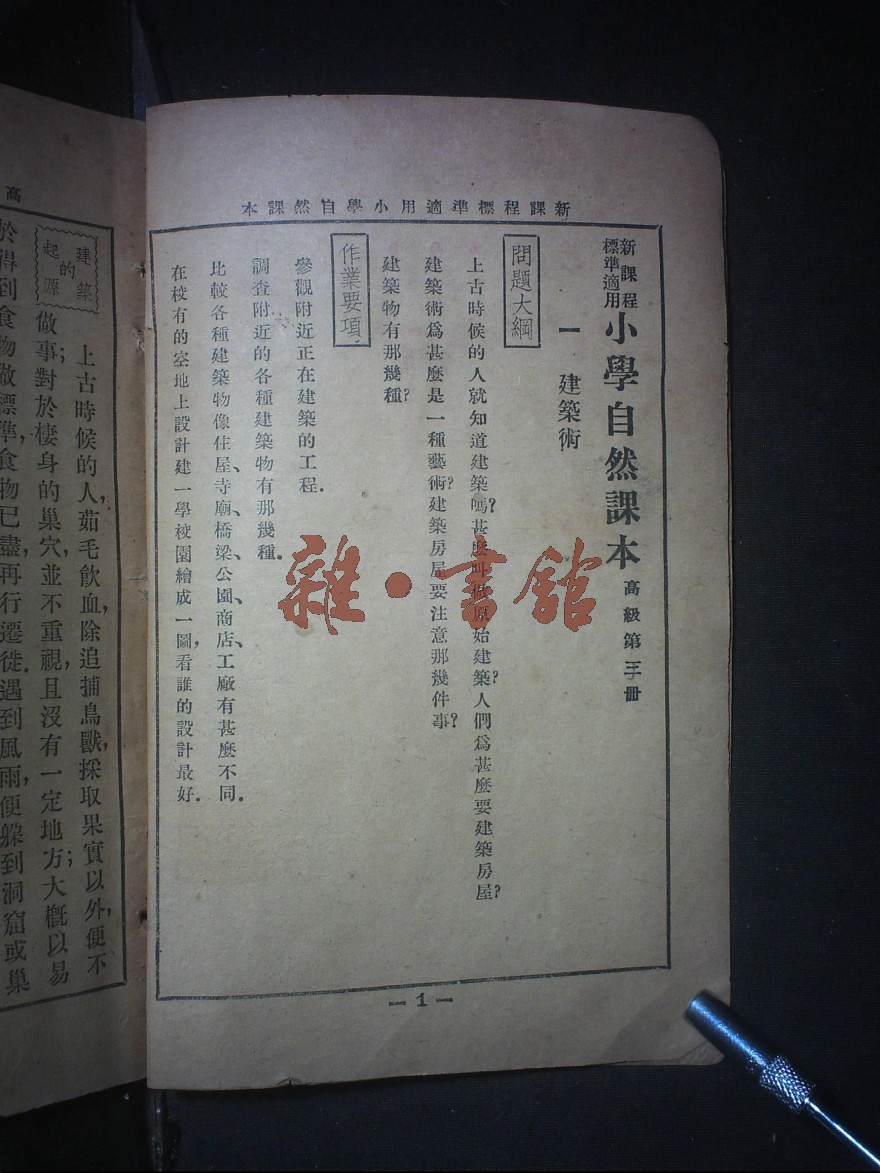 本課然自學小用適準標程課新
新課程標準適用 小學自然課本 高級第三冊
一 建築術
問題大綱
上古時候的人就知道建築嗎?甚麼叫做原始建築?人們爲甚麼要建築房屋?
建築術爲甚麼是一種藝術?建築房屋要注意那幾件事?
建築物有那幾種?
作業要項
參觀附近正在建築的工程.
調查附近的各種建築物有那幾種.
比較各種建築物像住屋、寺廟、橋梁、公園、商店、工廠有甚麼不同.
在校有的空地上設計建一學校園繪成一圖,看誰的設計最好.
— 1 —
雜·書館
高
建築的起源
上古時候的人,茹毛飲血,除追捕鳥獸,採取果實以外,便不
做事;對於棲身的巢穴,並不重視,且沒有一定地方;大概以易
於得到食物做標準,食物已盡,再行遷徙.遇到風雨,便躲到洞窟或巢